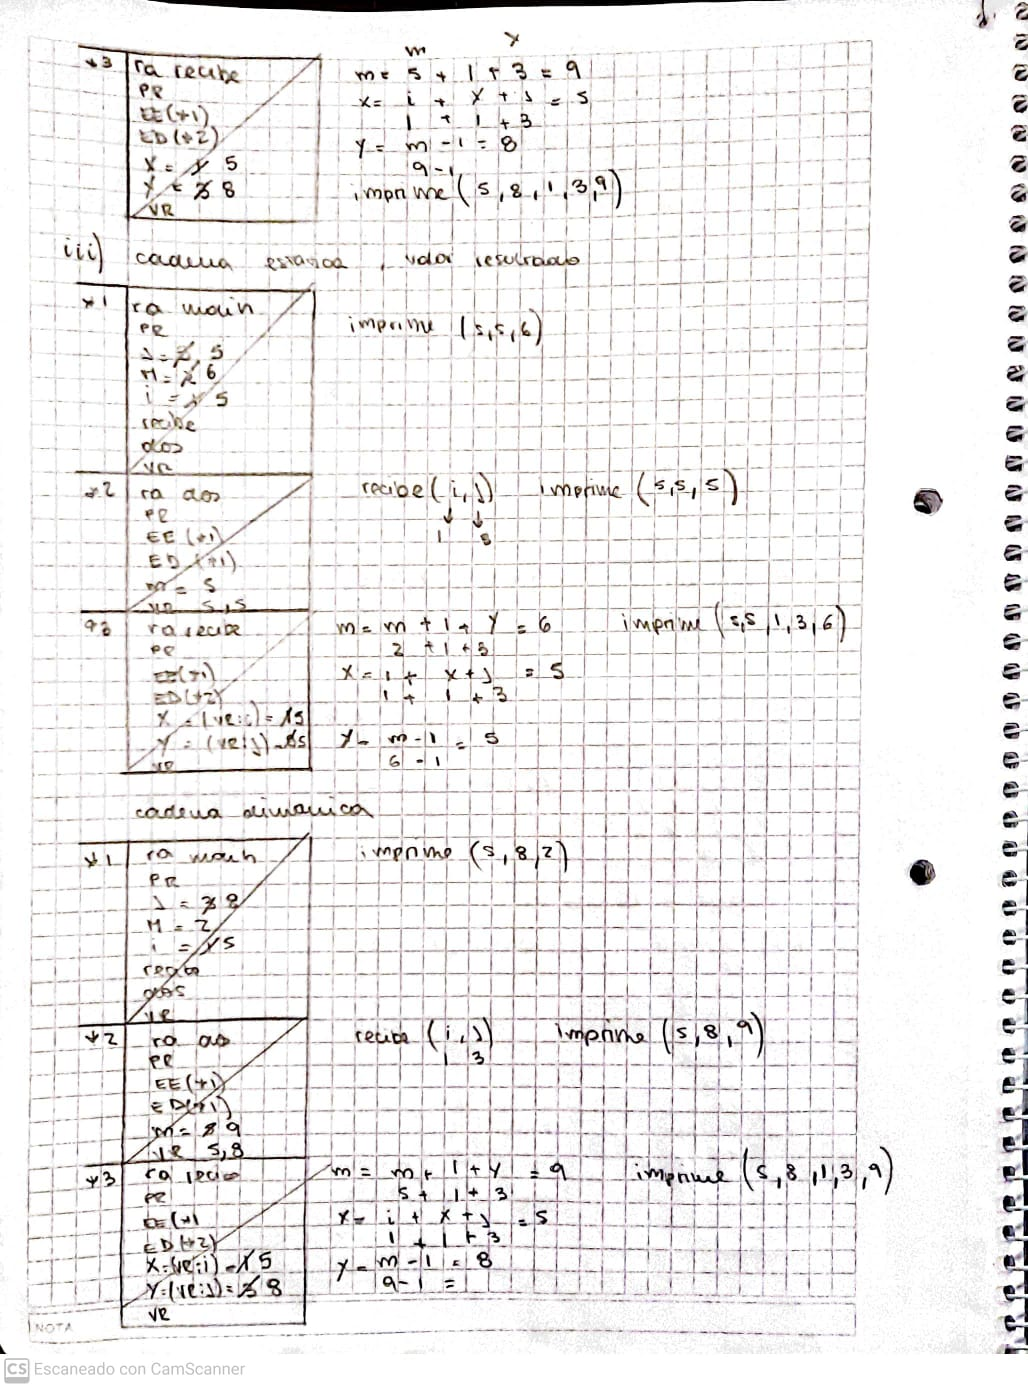 *3 ra recibe
PR
EE(*1)
ED(*2)
X = 1 5
Y = 3 8
VR
m x
m = 5 + 1 + 3 = 9
x = i + x + J = 5
1 + 1 + 3
y = m - 1 = 8
9 - 1
imprime (5, 8, 1, 3, 9)
iii) cadena estatica, valor resultado
*1 ra main
PR
J = 3 5
M = 2 6
i = 1 5
recibe
dos
VR
imprime (5,5,6)
*2 ra dos
PR
EE (*1)
ED (*1)
m = 5
VR 5,5
recibe (i, J) imprime (5,5,5)
↓ ↓
1 3
*3 ra recibe
PR
EE(*1)
ED(*2)
X = (VR:i) = 1 5
Y = (VR:J) = 3 5
VR
m = m + 1 + Y = 6 imprime (5,5,1,3,6)
2 + 1 + 3
X = 1 + x + J = 5
1 + 1 + 3
Y = m - 1 = 5
6 - 1
cadena dimanica
*1 ra main
PR
J = 3 8
M = 2
i = 1 5
recibe
dos
VR
imprime (5, 8, 2)
*2 ra dos
PR
EE(*1)
ED(*1)
m = 5 9
VR 5,8
recibe (i, J) imprime (5,8,9)
1 3
*3 ra recibe
PR
EE(*1
ED(*2)
X=(VR:i) = 1 5
Y=(VR:J) = 3 8
VR
m = m + 1 + Y = 9 imprime (5,8,1,3,9)
5 + 1 + 3
X = i + x + J = 5
1 + 1 + 3
Y = m - 1 = 8
9 - 1 =
NOTA
CS Escaneado con CamScanner